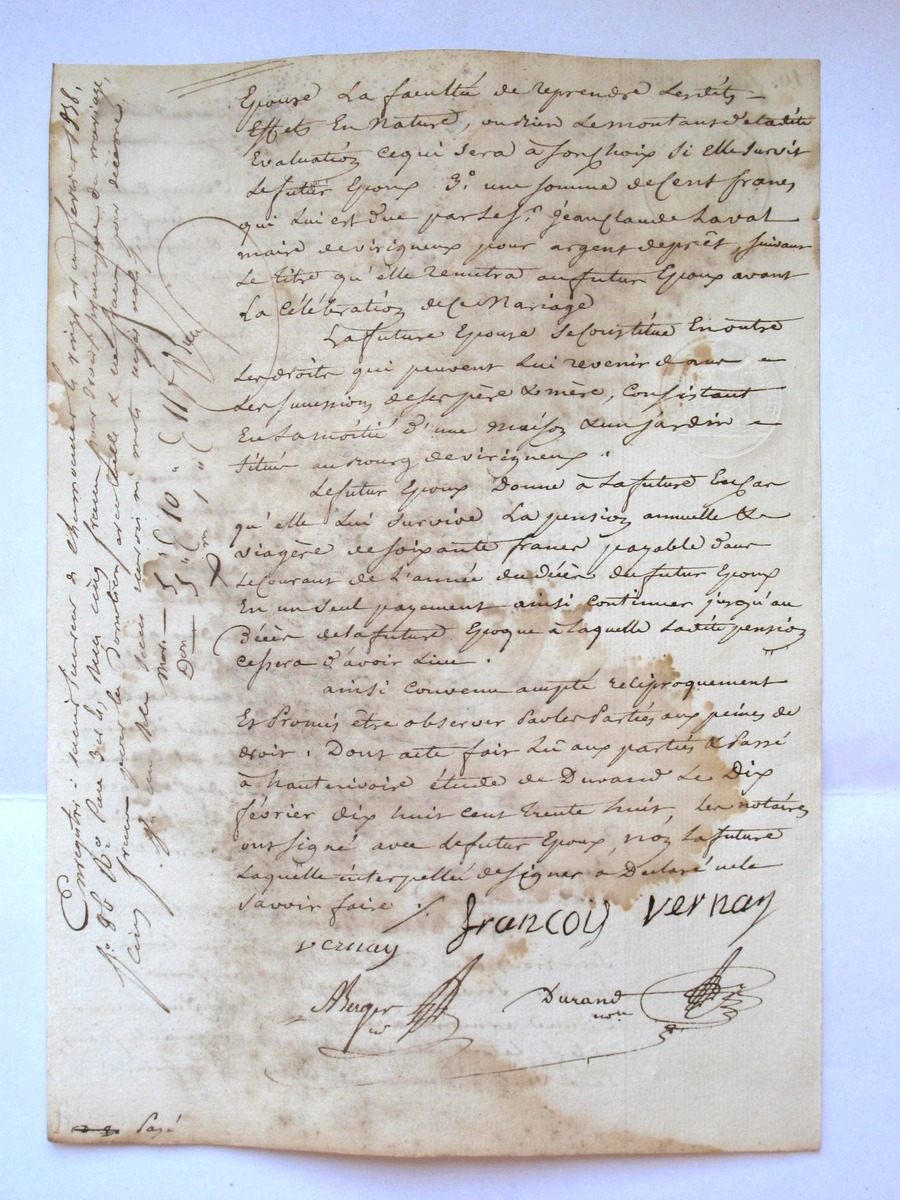 Epouse La faculté de reprendre Lesdits
Effets En Nature, ou bien Le montant de ladite
Evaluation ce qui sera à son choix si elle survit
Le futur Epoux. 3° une somme de Cent francs
qui Lui est due par Le Sr. Jean Claude Laval
maire de virigneux pour argent de prêt, suivant
Le titre qu'elle remettra au futur Epoux avant
La Célébration de Ce Mariage
La future Epouse se Constitue En outre
Les droits qui peuvent Lui revenir dans
Les successions de ses père & mère, Consistant
En La moitié d'une maison & un jardin
situés au bourg de virigneux.
Le futur Epoux Donne à La future En Cas
qu'elle Lui survive La pension annuelle &
viagère de soixante francs payable dans
Le Courant de L'année du décès du futur Epoux
En un seul payement ainsi Continuer jusqu'au
Décès de La future Epoque à Laquelle Ladite pension
Cessera d'avoir Lieu.
ainsi Convenu accepté réciproquement
Et Promis être observer Par Les Parties aux peines de
droit. Dont acte fait Lû aux parties & Passé
à hauterivoire étude de Durand Le Dix
février dix huit cent trente huit, Les notaires
ont signé avec Le futur Epoux, non La future
Laquelle interpellée de signer a Declaré ne le
savoir faire ./.
françois vernay
vernay
Berger
Durand
nore
Enregistré à Saint Laurent de Chamousset le vingt février 1838,
fo. 86 Ro. Case 3 et 4, Reçu cinq francs pour droit principal du mariage,
Cinq francs pour la donation éventuelle & un franc pour décime
Mar. 5 " } 10 " } 11 f
Don 5 " } 1 " }
Payé